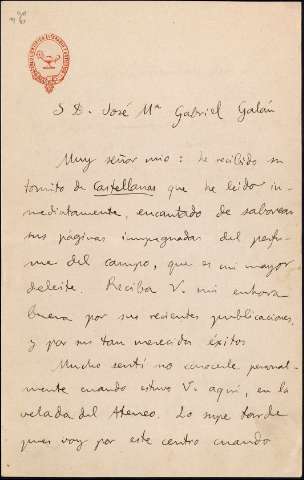 S D. José Mª Gabriel Galán
Muy señor mio: he recibido su
tomito de Castellanas que he leido in-
mediatamente, encantado de saborear
sus páginas impregnadas del perfu-
me del campo, que es mi mayor
deleite. Reciba V. mi enhora
buena por sus recientes publicaciones,
y por sus tan merecidos éxitos
Mucho sentí no conocerle personal-
mente cuando estuvo V. aquí, en la
velada del Ateneo. Lo supe tarde
pues voy por este centro cuando